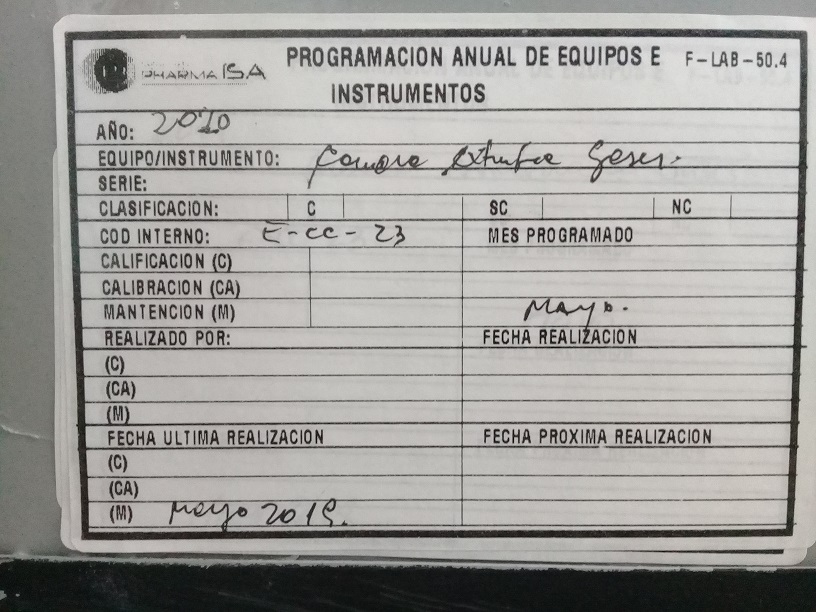 PHARMA ISA
PROGRAMACION ANUAL DE EQUIPOS E F-LAB-50.4
INSTRUMENTOS
AÑO:
EQUIPO/INSTRUMENTO:
SERIE:
CLASIFICACION: C SC NC
COD INTERNO: E-CC-23 MES PROGRAMADO
CALIFICACION (C)
CALIBRACION (CA)
MANTENCION (M) Mayo.
REALIZADO POR: FECHA REALIZACION
(C)
(CA)
(M)
FECHA ULTIMA REALIZACION FECHA PROXIMA REALIZACION
(C)
(CA)
(M) Mayo 2019.